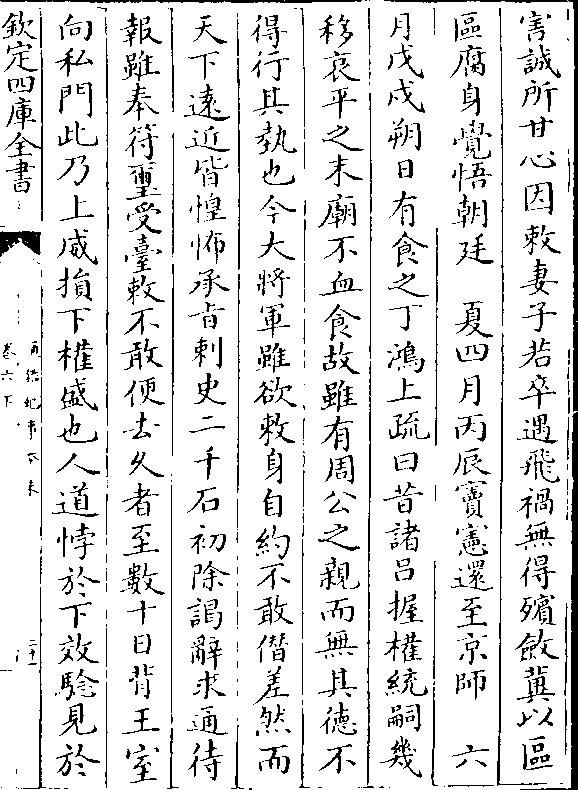 害誠所甘心因敕妻子若卒遇飛禍無得殯斂冀以區
區腐身覺悟朝廷　夏四月丙辰竇憲還至京師　六
月戊戌朔日有食之丁鴻上疏曰昔諸呂握權統嗣幾
移哀平之末廟不血食故雖有周公之親而無其德不
得行其埶也今大將軍雖欲敕身自約不敢僭差然而
天下遠近皆惶怖承旨刺史二千石初除謁辭求通待
報雖奉符璽受臺敕不敢便去久者至數十日背王室
向私門此乃上威損下權盛也人道悖於下效驗見於
欽定四庫全書
通鑑紀事本末
卷六下
二十一